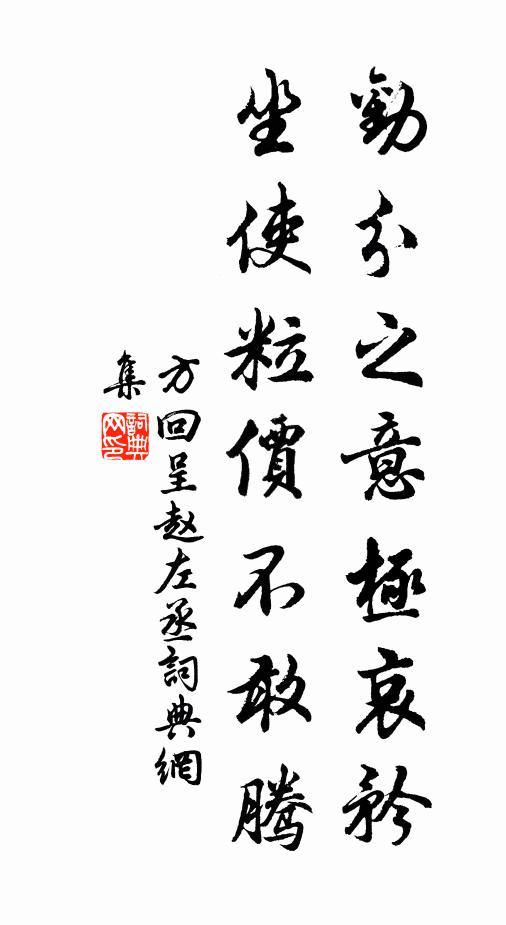 勸分之意極哀矜
坐使粒價不敢騰
方回呈赵左丞詞典網
集
詞典
网印